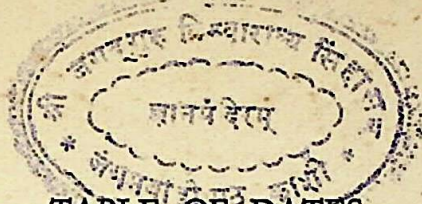 श्री जगद्गुरु विश्वाराध्य सिंहासन
ज्ञानमंदिरम्
* जंगमवाडी मठ, काशी *
TABLE OF DATES